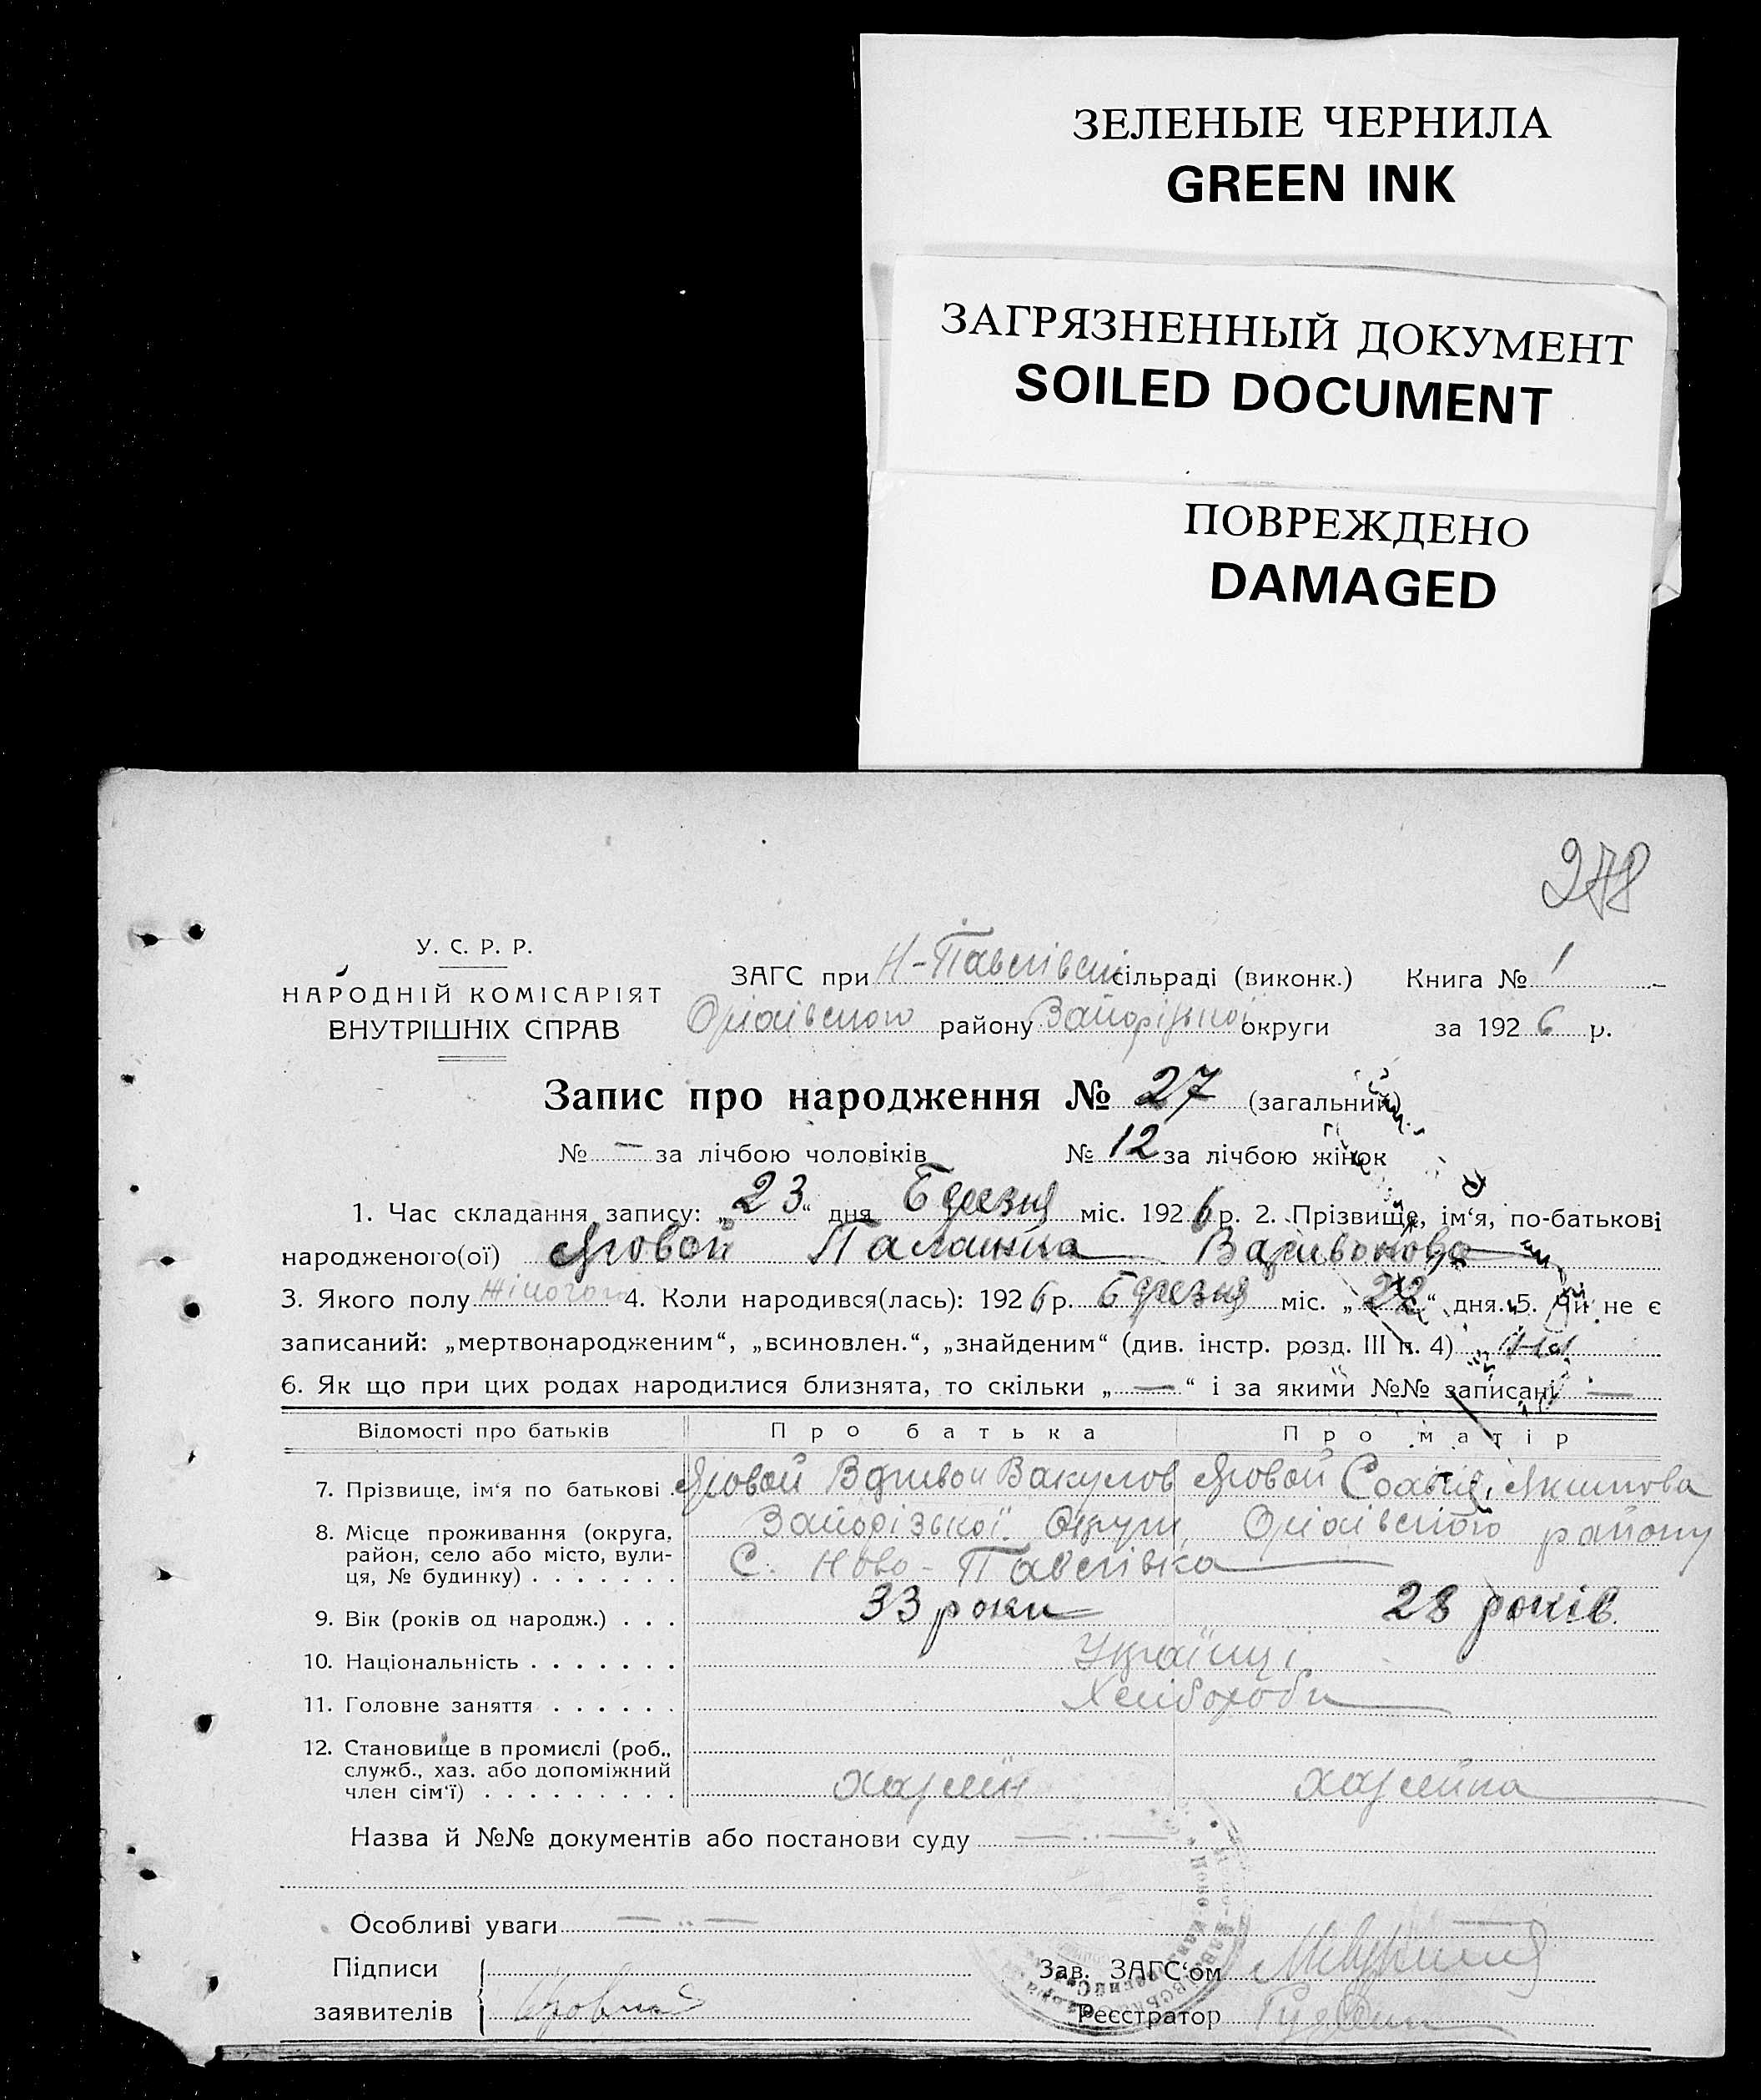 ЗЕЛЕНЫЕ ЧЕРНИЛА
GREEN INK
ЗАГРЯЗНЕННЫЙ ДОКУМЕНТ
SOILED DOCUMENT
ПОВРЕЖДЕНО
DAMAGED
278
У. С. Р. Р.
НАРОДНІЙ КОМІСАРІЯТ
ВНУТРІШНІХ СПРАВ
ЗАГС при Н-Павлівскі сільраді (виконк.) Книга № 1
Оріхівского району Запорізької округи за 1926 р.
Запис про народження № 27 (загальний)
№ — за лічбою чоловіків № 12 за лічбою жінок
1. Час складання запису: „23“ дня Березня міс. 1926 р. 2. Прізвище, ім‘я, по-батькові
народженого(ої) Яровой Палашка
3. Якого полу Жіночого 4. Коли народився(лась): 1926 р. Березня міс. „22“ дня. 5. Чи не є
записаний: „мертвонародженим“, „всиновлен.“, „знайденим“ (див. інстр. розд. III п. 4)
6. Як що при цих родах народилися близнята, то скільки „—“ і за якими №№ записані —
Відомості про батьків Про батька Про матір
7. Прізвище, ім‘я по батькові . Яровой Вакулов Яровой Якимова
8. Місце проживання (округа, район, село або місто, вулиця, № будинку) . . . . . . . Запорізької Округи Оріхівского району
С. Ново-Павлівка
9. Вік (років од народж.) . . . 33 роки 28 років.
10. Національність . . . . . . . Українці
11. Головне заняття . . . . . . Хлібороби
12. Становище в промислі (роб., служб., хаз. або допоміжний член сім‘ї) . . . . . . . . . хазяїн хазяйка
Назва й №№ документів або постанови суду — .. —
Особливі уваги — .. —
Підписи
заявителів Яровий
Зав. ЗАГС‘ом
Реєстратор